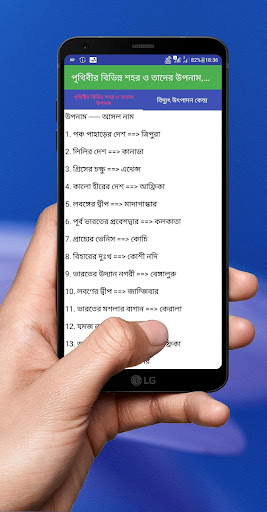 82% 18:36
পৃথিবীর বিভিন্ন শহর ও তাদের উপনাম,...
পৃথিবীর বিভিন্ন শহর ও তাদের উপনাম
বিদ্যুৎ উৎপাদন কেন্দ্র
উপনাম ----- আসল নাম
1. পঞ্চ পাহাড়ের দেশ ==> ত্রিপুরা
2. লিলির দেশ ==> কানাডা
3. গ্রিসের চক্ষু ==> এথেন্স
4. কালো হীরের দেশ ==> আফ্রিকা
5. লবঙ্গের দ্বীপ ==> মাদাগাস্কার
6. পূর্ব ভারতের প্রবেশদ্বার ==> কলকাতা
7. প্রাচ্যের ভেনিস ==> কোচি
8. বিহারের দুঃখ ==> কোশী নদি
9. ভারতের উদ্যান নগরী ==> বেঙ্গালুরু
10. লবণের দ্বিপ ==> জাঞ্জিবার
11. ভারতের মশলার বাগান ==> কেরালা
12. যমজ
13.
LG